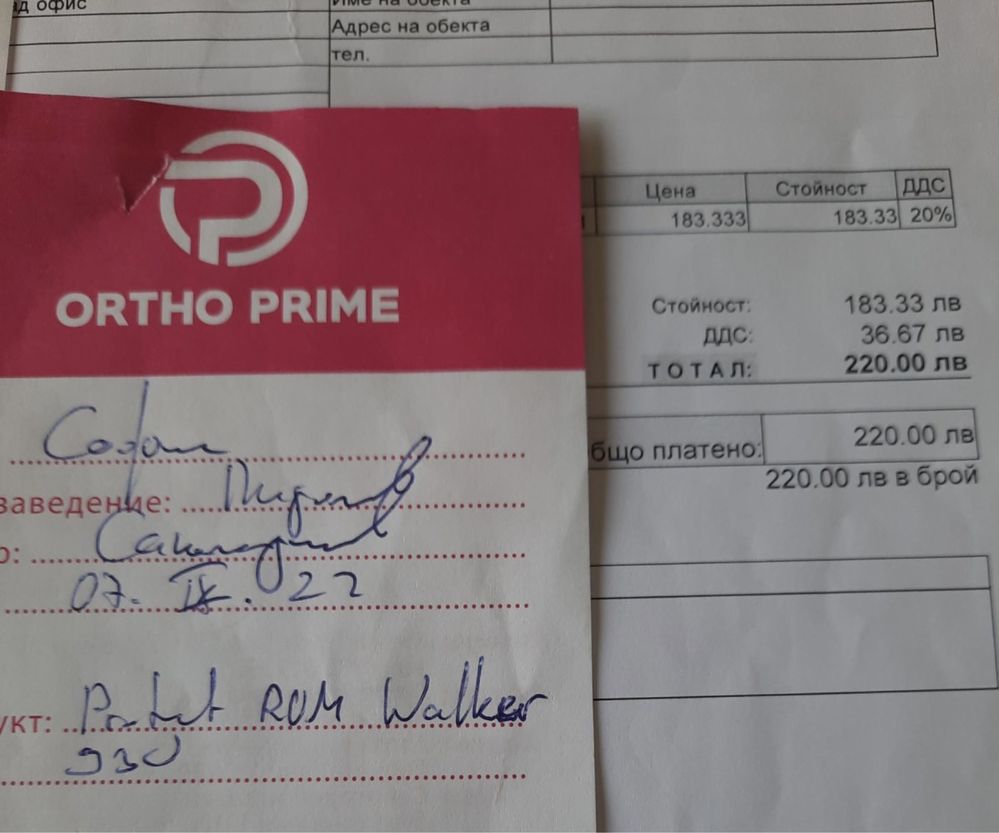 д офис
Име на обекта
Адрес на обекта
тел.
ORTHO PRIME
Цена Стойност ДДС
183.333 183.33 20%
Стойност: 183.33 лв
ДДС: 36.67 лв
ТОТАЛ: 220.00 лв
бщо платено: 220.00 лв
220.00 лв в брой
София
заведение: Пирогов
о:
07. IX. 22
укт: ROM Walker
930